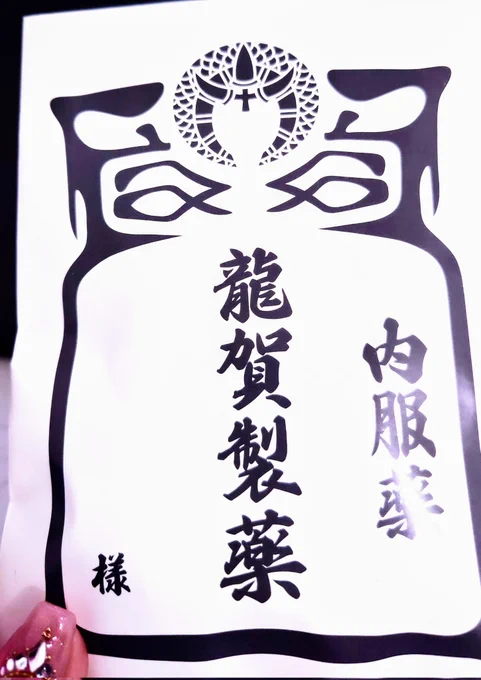 内服薬
龍賀製薬
様